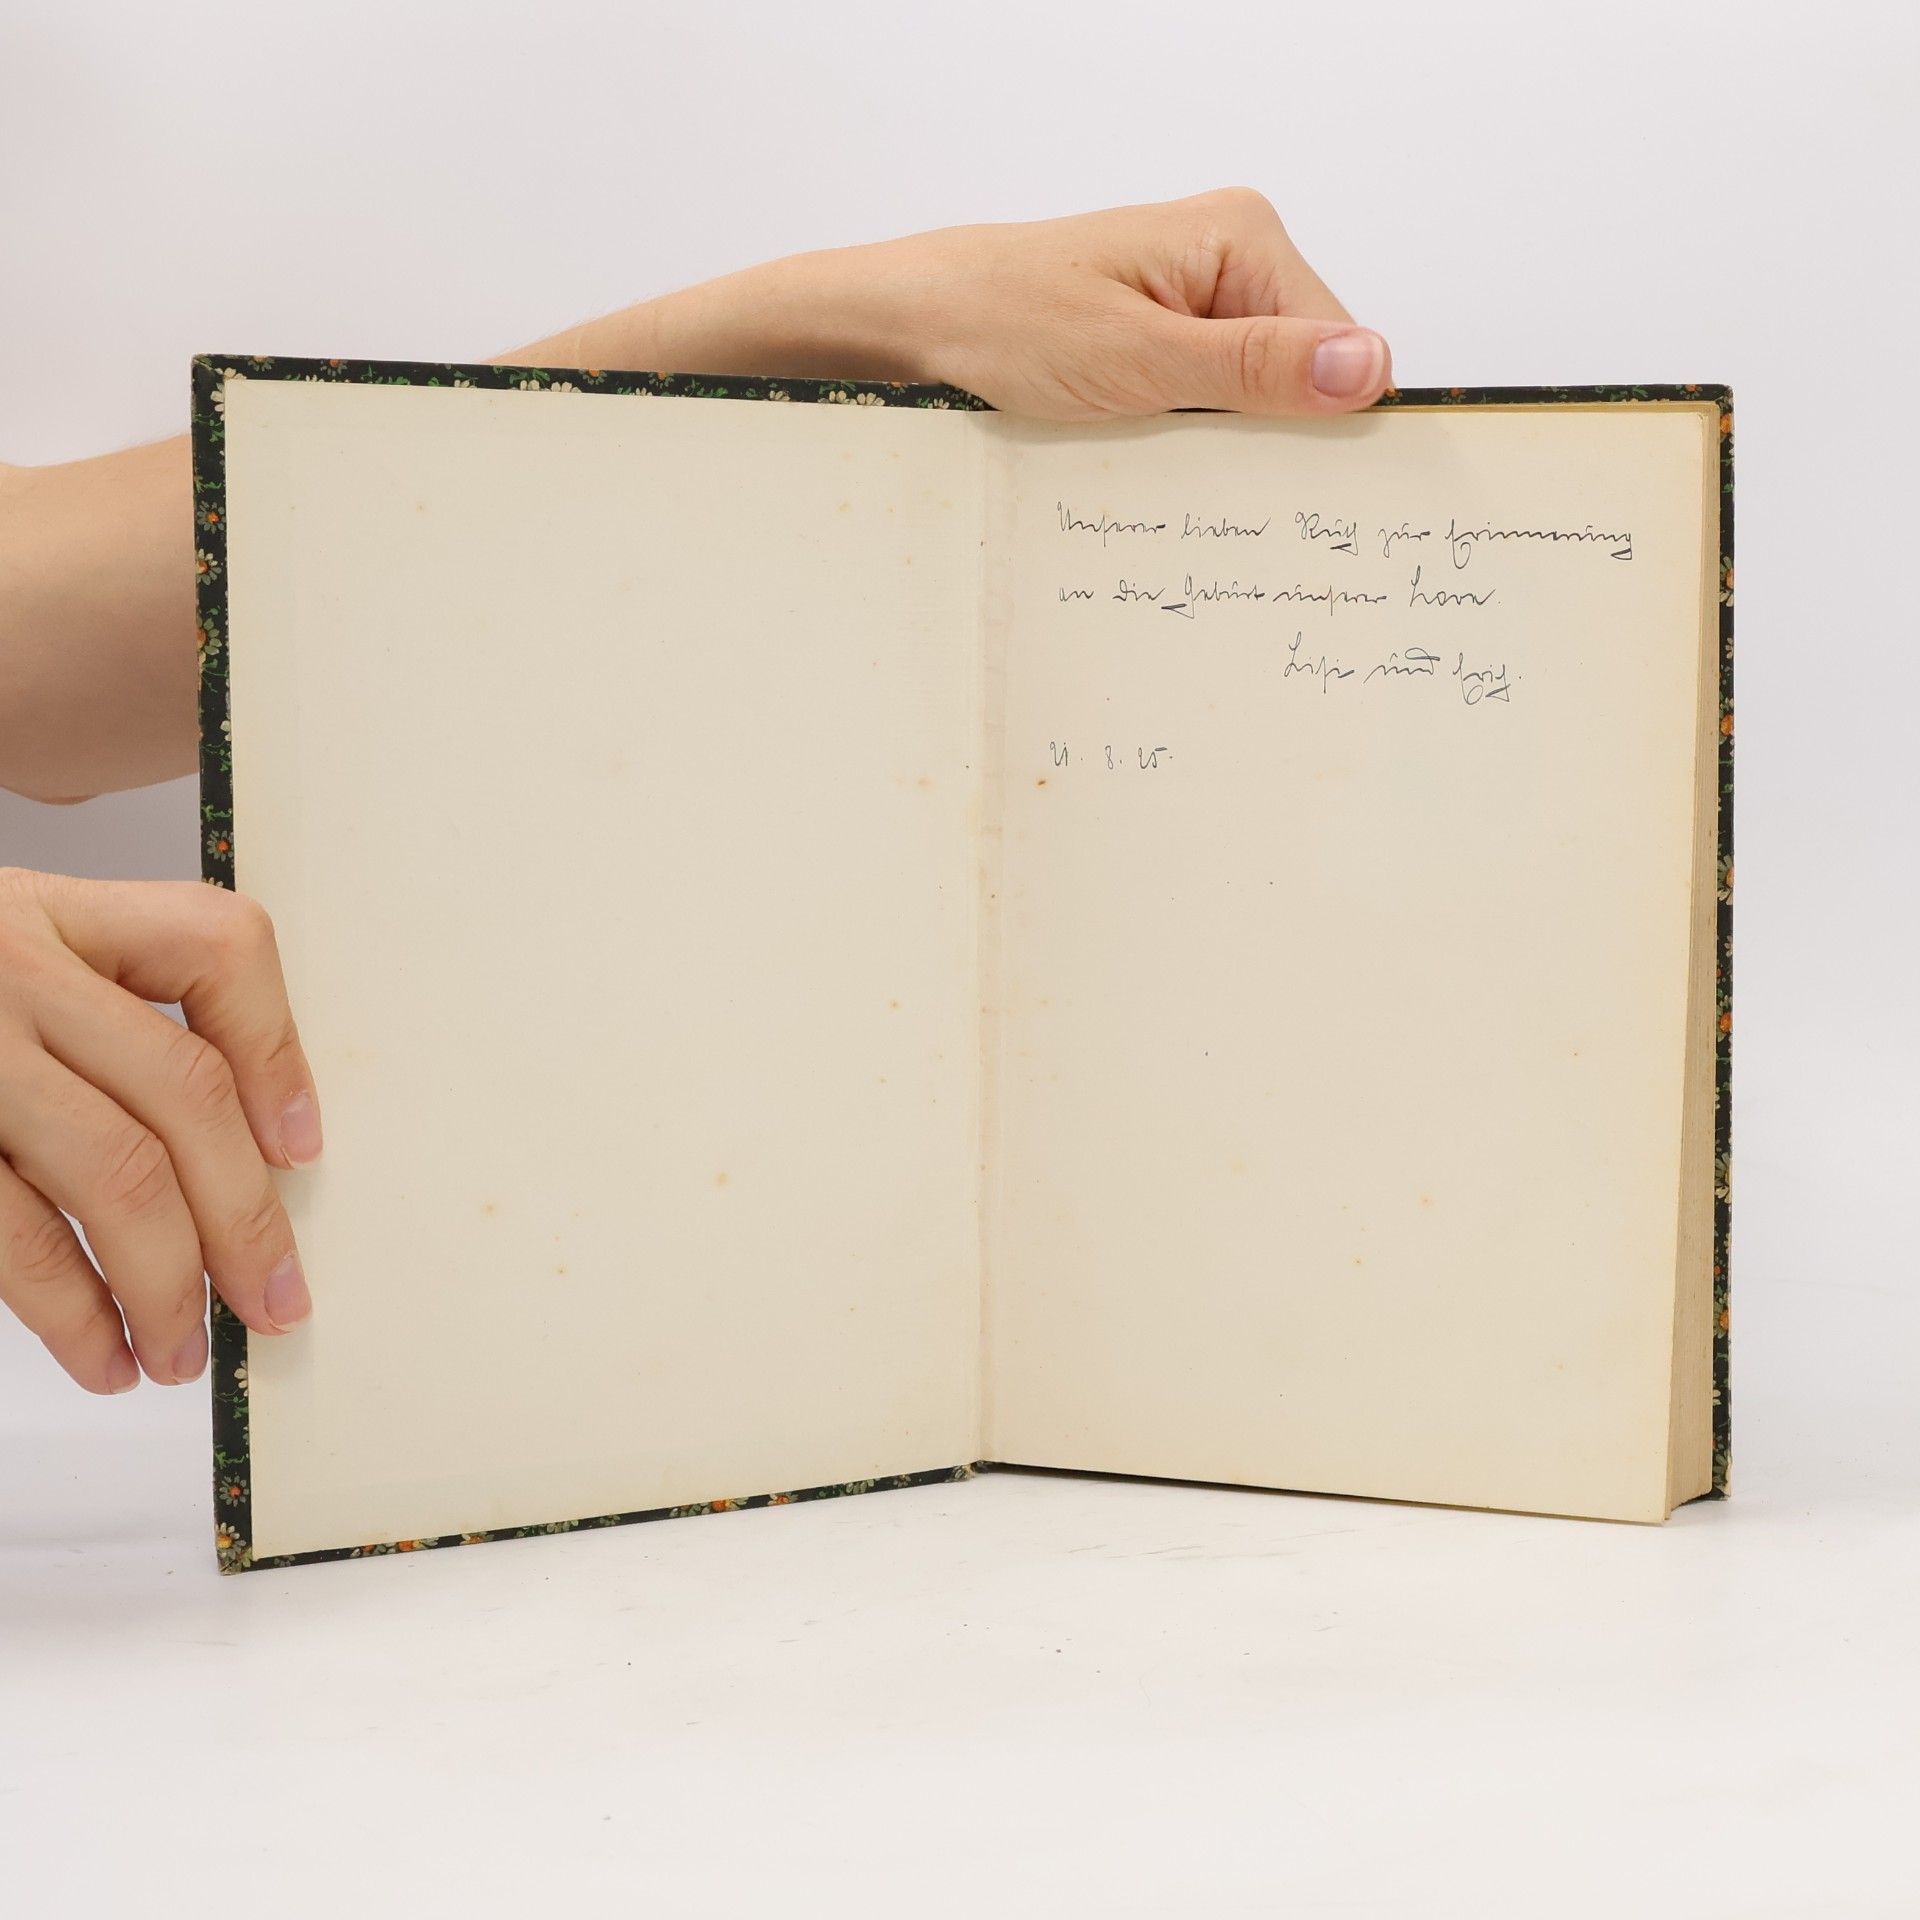 Unserer lieben Ruth zur Erinnerung
an die Geburt unserer Lore.
Lisi und Erich.
21. 8. 25.